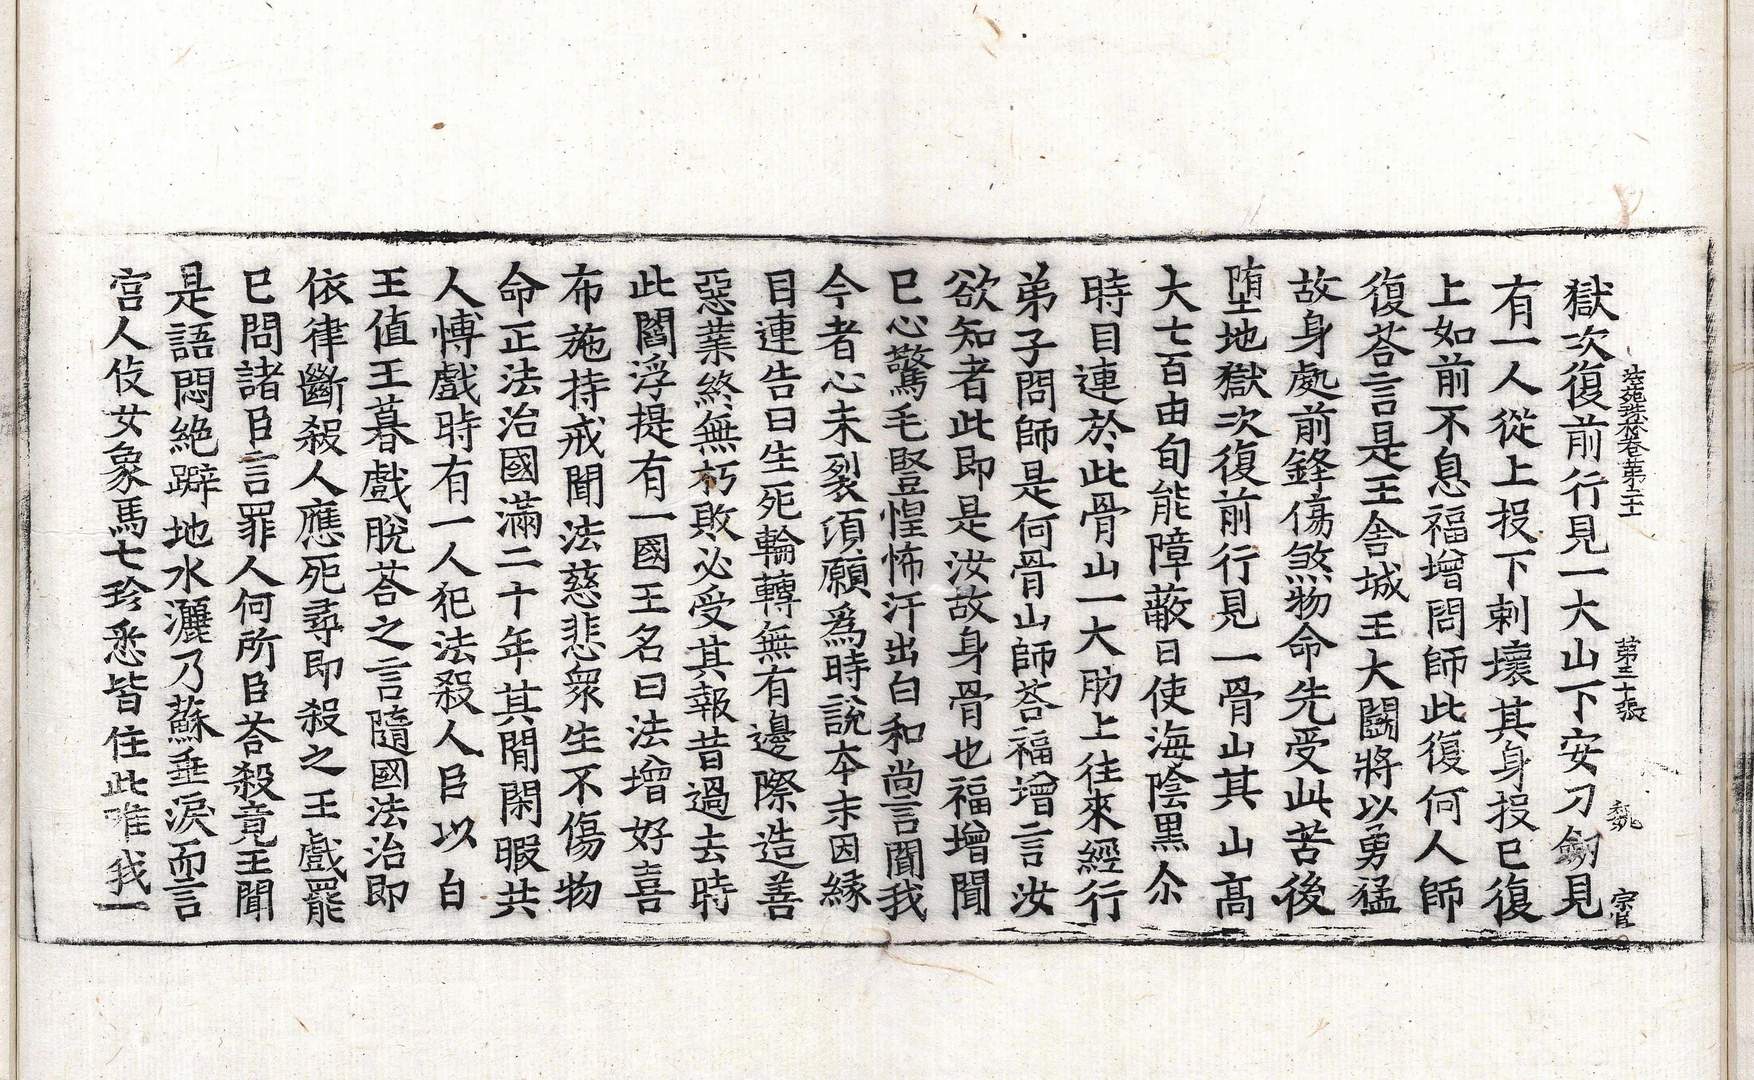 獄次復前行見一大山下安刀劒見
法苑珠林卷第二十 第三十張 魏 宗官
有一人從上投下刺壞其身投已復
上如前不息福增問師此復何人師
復荅言是王舍城王大鬪將以勇猛
故身處前鋒傷煞物命先受此苦後
堕地獄次復前行見一骨山其山高
大七百由旬能障蔽日使海陰黒尒
時目連於此骨山一大肋上往來經行
弟子問師是何骨山師荅福增言汝
欲知者此即是汝故身骨也福增聞
已心驚毛竪惶怖汗出白和尚言聞我
今者心未裂須願爲時說本末因縁
目連告曰生死輪轉無有邊際造善
惡業終無朽敗必受其報昔過去時
此閻浮提有一國王名曰法增好喜
布施持戒聞法慈悲衆生不傷物
命正法治國滿二十年其閒閑暇共
人愽戲時有一人犯法殺人臣以白
王值王暮戲脫荅之言隨國法治即
依律斷殺人應死尋即殺之王戲罷
已問諸臣言罪人何所臣荅殺竟王聞
是語悶絶躃地水灑乃蘇垂淚而言
宫人伎女象馬七珍悉皆住此唯我一